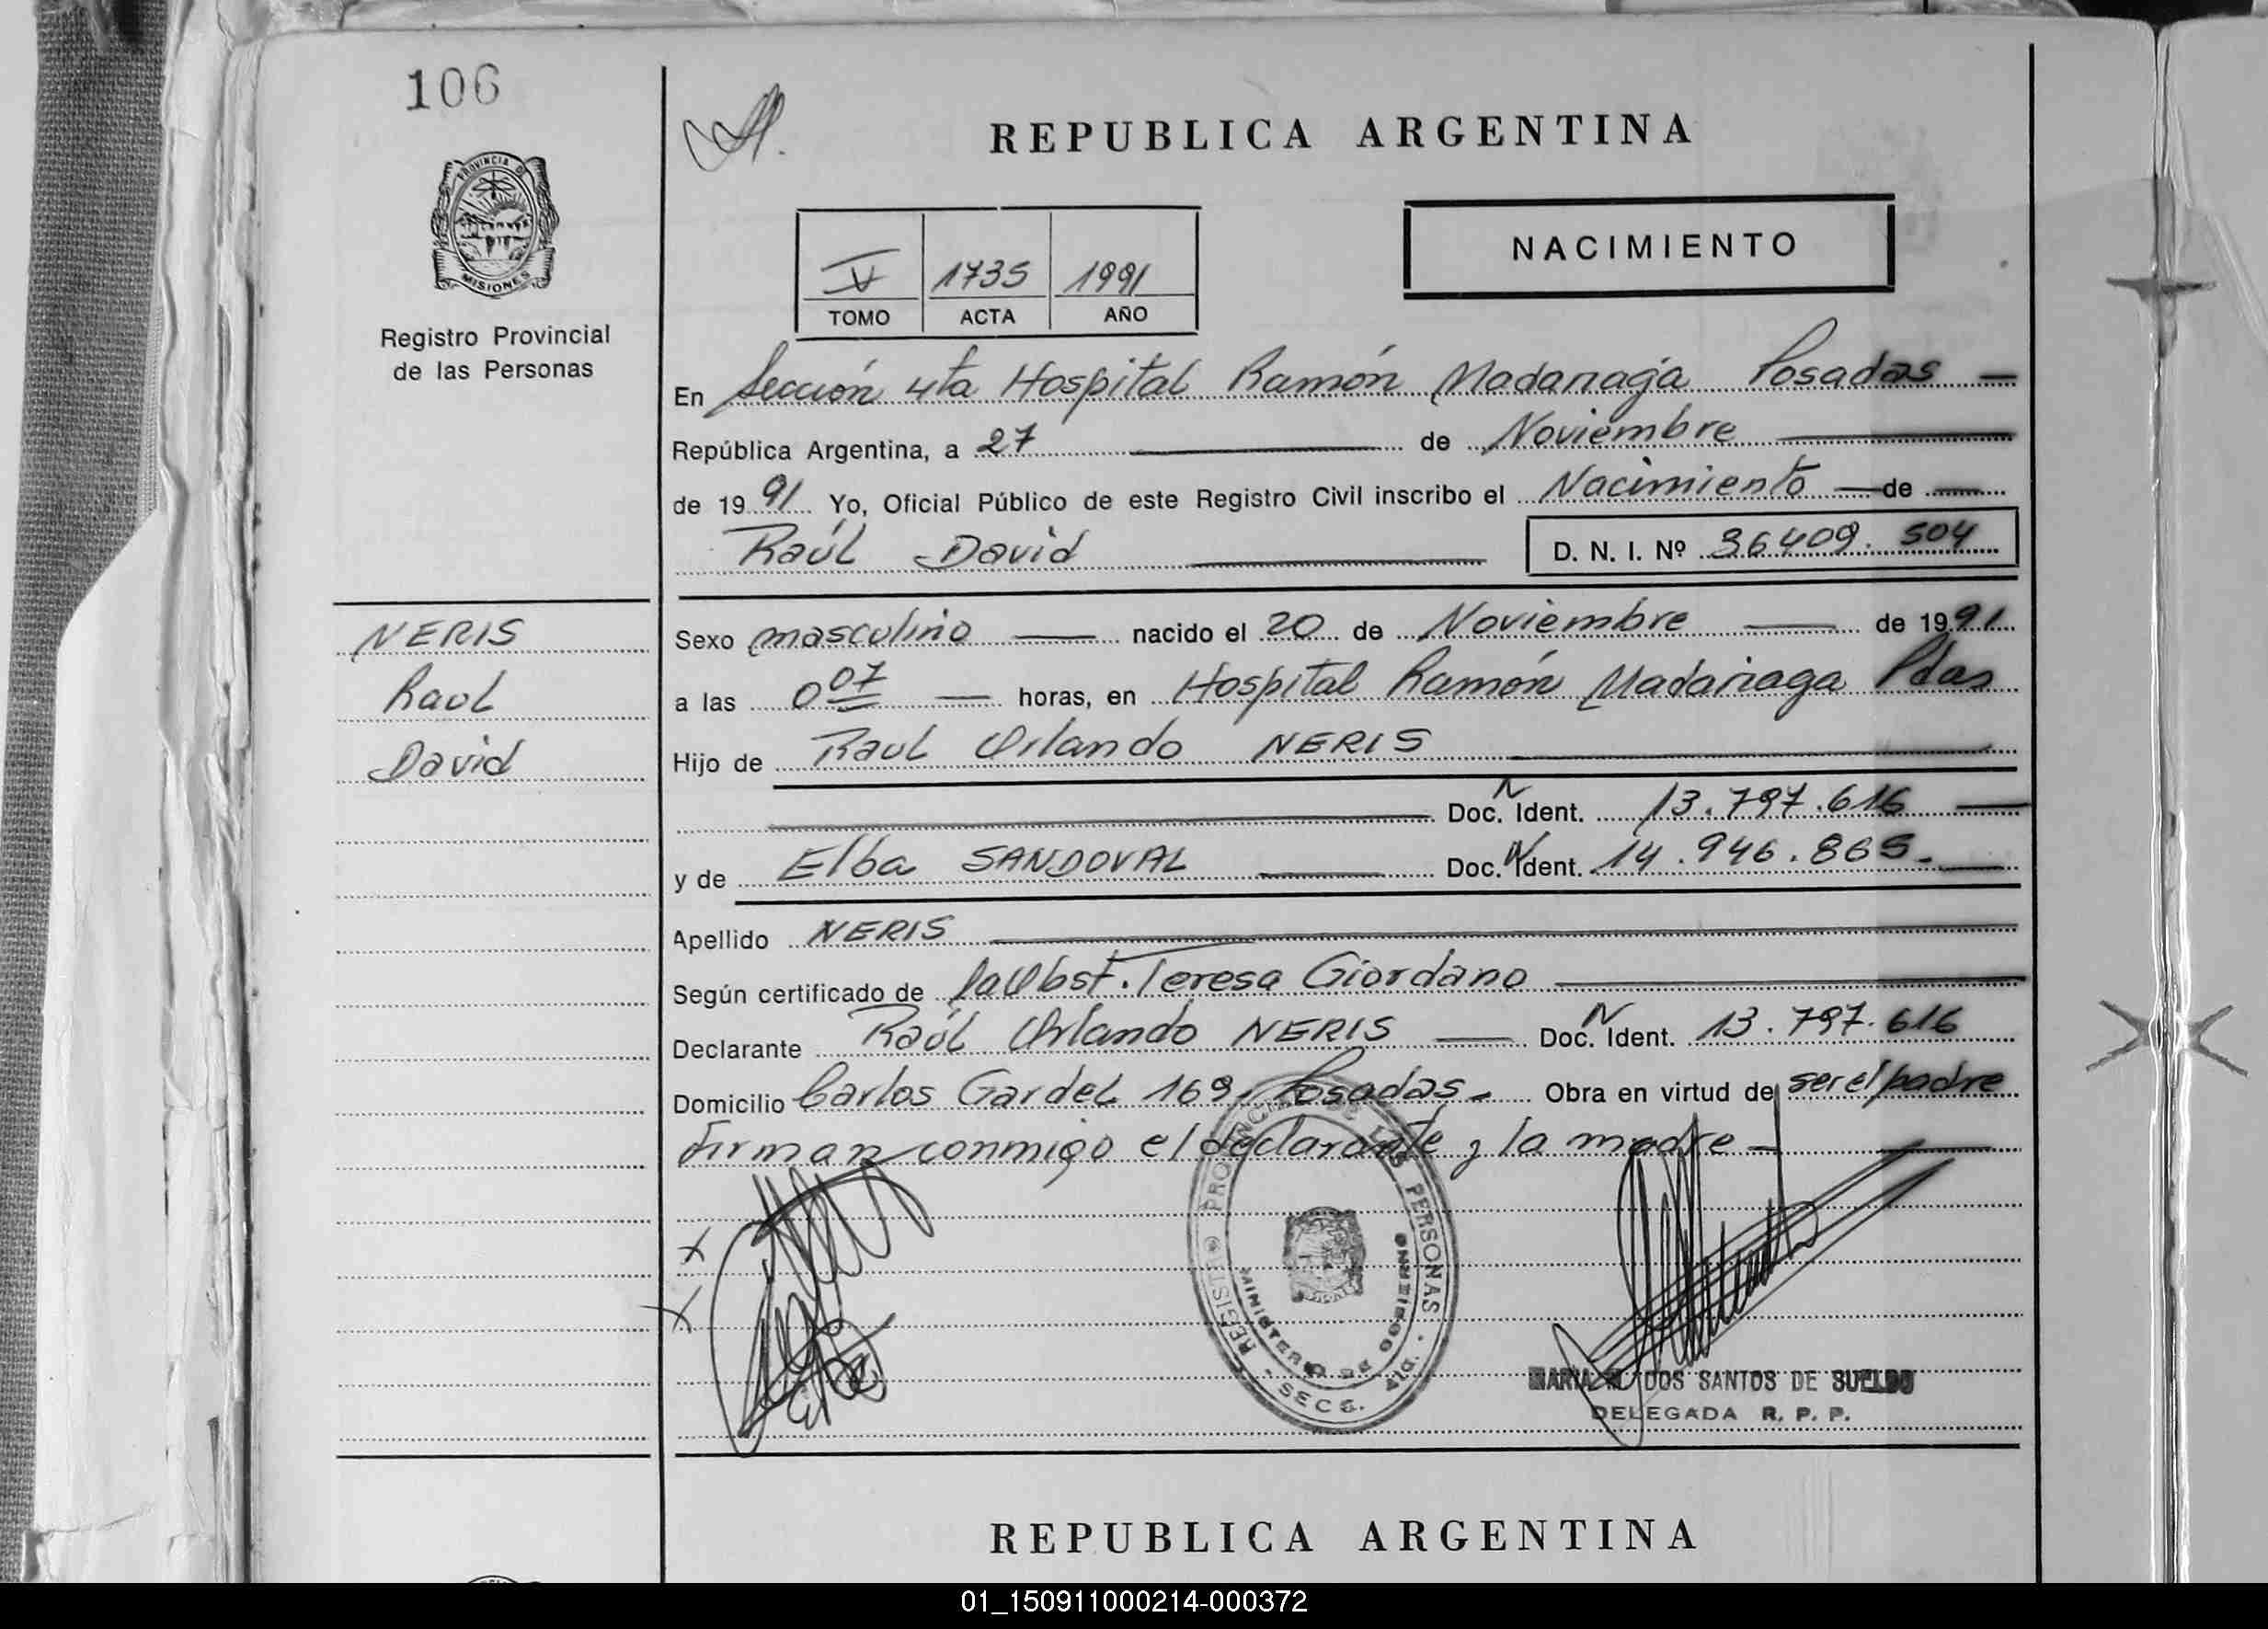 106
PROVINCIA DE
MISIONES
Registro Provincial
de las Personas
REPUBLICA ARGENTINA
NACIMIENTO
V 1735 1991
TOMO ACTA AÑO
En Sección 4ta Hospital Ramón Madariaga Posadas
República Argentina, a 27 de Noviembre
de 1991 Yo, Oficial Público de este Registro Civil inscribo el Nacimiento de
Raúl David D. N. I. Nº 36409.504
NERIS
Raul
David
Sexo masculino nacido el 20 de Noviembre de 1991
a las 0 07 horas, en Hospital Ramón Madariaga Pdas
Hijo de Raul Orlando NERIS
Doc. N Ident. 13.797.616
y de Elba SANDOVAL Doc. N Ident. 14.946.865.
Apellido NERIS
Según certificado de la Obst. Teresa Giordano
Declarante Raúl Orlando NERIS Doc. N Ident. 13.797.616
Domicilio Carlos Gardel 169, Posadas. Obra en virtud de ser el padre
Firman conmigo el declarante y la madre
REGISTRO PROVINCIAL DE LAS PERSONAS
MINISTERIO DE GOBIERNO
SECC.
MARIA DOS SANTOS DE SUELDO
DELEGADA R. P. P.
REPUBLICA ARGENTINA
01_150911000214-000372